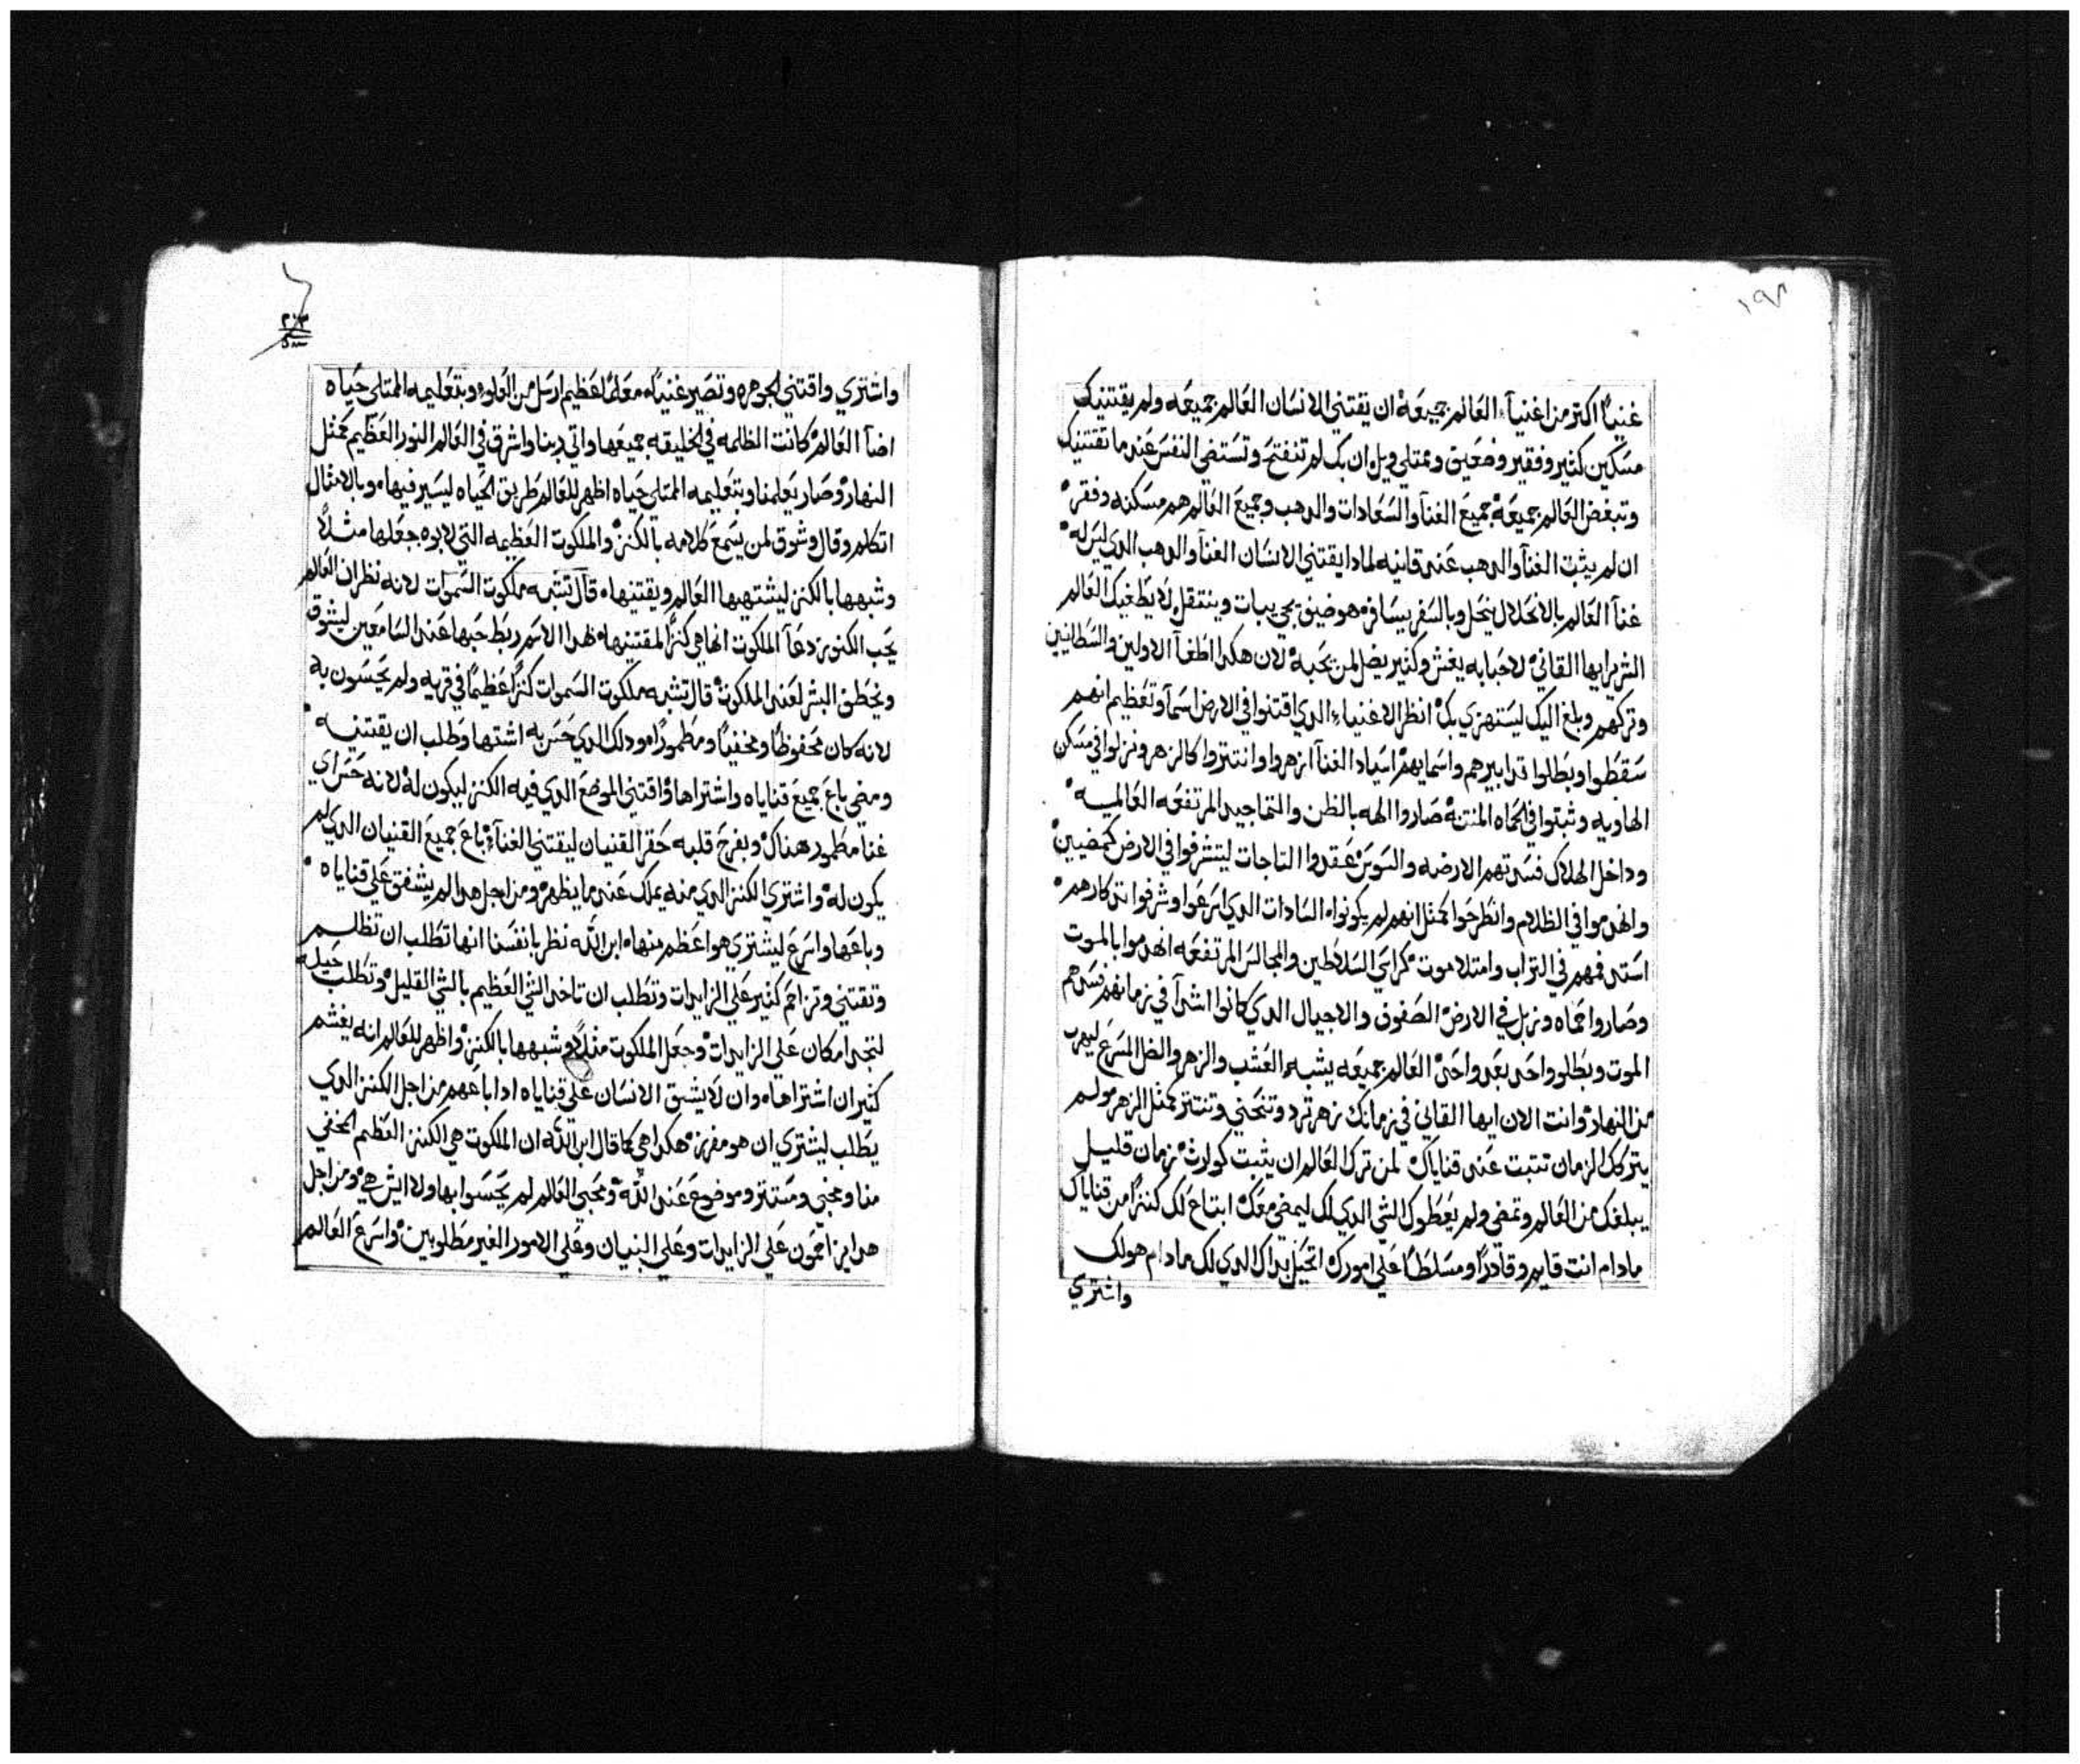 ١٩٨
غنياً اكتر من اغنيآء العَالم جميعَة ان يقتني الانسَان العَالم جميعَه ولم يقتنيك
مسَكين كثير وفقير وضعَيق وممتلي ويل ان بك لم تنفتح وتسَتضي النفسَ عَند ما تقتنيك
وتبغض العَالم جميعَة جميعَ الغنآ والسَعَادات والدهب وجميعَ العَالم هم مسَكنه وفقر
ان لم يثبت الغنآ والدهب عَند قانيه لمادا يقتني الانسَان الغنآ والدهب الدي ليسَ له
غنآ العَالم بالانحَلال ينحَل وبالسَفر يسَافر هو ضيق بجريبات وينتقل لا يطَغيك العَالم
الشرير ايها القاني لاحَبابه يغش وكثير يضل لمن يحَبه لان هكدا اطَغآ الاولين والسَطانيين
وتركهم وبلغ اليك ليسَتهزي بك انظر الاغنياء الدي اقتنوا في الارض اسَمآ وتعَظيم انهم
سَقطَوا وبطَالوا تدابيرهم واسَمايهم اسَياد الغنآ ازهروا وانتتروا كالزهر ونزلوا في مسَكن
الهاويه وثبتوا في الحَماه المنتنة صَاروا الهه بالظن والتماجيد المرتفعَه العَالميه
وداخل الهلاك فسَدتهم الارضه والسَوسَ عَقدوا التاجات ليتشرفوا في الارض كمضيين
وانهدموا في الظلام وانطَرحَوا كمثل انهم لم يكونوا السَادات الدي اسَرعَوا وشرفوا تدكارهم
اسَتد فمهم في التراب وامتلا موت كراسَي السَلاطَين والمجالسَ المرتفعَه انهدموا بالموت
وصَاروا حَماه وزبل في الارض الصَفوف والاجيال الدي كانوا اشرآ في زمانهم فسَدهم
الموت وبطَلوا واحَد بعَد واحَد العَالم جميعَه يشبه العَشب والزهر والظل المسَرعَ ليهرب
من النهار وانت الان ايها القاني في زمانك زهر ترد وتنحَني وتنتتر كمثل الزهر ولم
يتركك الزمان تتبت عَند قناياك لمن ترك العَالم ان يثبت كوارث زمان قليل
يبلغك من العَالم وتمضي ولم يعَطَوك الشي الدي لك ليمضي معَك ابتاعَ لك كنزاً من قناياك
مادام انت قايم وقادراً ومسَلطَاً عَلي امورك اتحَيل بداك الدي لك مادام هو لك
واشتري
٢٠٣
واشتري واقتني الجوهره وتصَير غنياً له معَلماً عَظيم ارسَل من العَلو وبتعَليمه الممتلي حَياه
اضآ العَالم كانت الظلمه في الخليقه جميعَها واتي ربنا واشرق في العَالم النور العَظيم كمثل
النهار وصَار يعَلمنا وبتعَليمه الممتلي حَياه اظهر للعَالم طَريق الحَياه ليسَير فيها وبالامثال
اتكلم وقال وشوق لمن يسَمعَ كلامه بالكنز والملكوت العَظيمه التي لابوه جعَلها مثلاً
وشبهها بالكنز ليشتهيها العَالم ويقتنيها قال تشبه ملكوت السَموات لانه نظر ان العَالم
يحَب الكنوز دعَآ الملكوت انها هي كنزاً لمقتنيها لهدا الاسَم ربطَ حَبها عَند السَامعَين ليشوق
ويخطَف البشر لعَند الملكوت قال تشبه ملكوت السَموات كنزاً عَظيماً في قريه ولم يحَسَون به
لانه كان محَفوظاً ومخفياً ومطَموراً هو وداك الدي حَسَ به اشتها وطَلب ان يقتنيه
ومضي باعَ جميعَ قناياه واشتراها واقتني الموضعَ الدي فيه الكنز ليكون له لانه حَسَ راي
غنا مطَمور هناك وبفرح قلبه حَقر القنيان ليقتني الغنآ باعَ جميعَ القنيان الدي لم
يكون له واشتري الكنز الدي منه يملك عَند ما يظهر ومن اجل هدا لم يشفق عَلي قناياه
وباعَها واسَرعَ ليشتري هو اعَظم منها ابن الله نظر بانفسَنا انها تطَلب ان تظلم
وتقتني وتزاحَم كثير عَلي الزايدات وتطَلب ان تاخد الشي العَظيم بالشي القليل وتطَلب حَيله
لتجد امكان عَلي الزايدات وجعَل الملكوت مثلاً وشبهها بالكنز واظهر للعَالم انه يغشم
كثير ان اشتراها وان لا يشق الانسَان عَلي قناياه ادا باعَهم من اجل الكنز الدي
يطَلب ليشتري ان هو مفرز هكدا هي كما قال ابن الله ان الملكوت هي الكنز العَظيم المخفي
منا ومخبي ومسَتتر وموضوعَ عَند الله ومحَبي العَالم لم يحَسَوا بها ولا ايش هي ومن اجل
هدا يزاحَمون عَلي الزايدات وعَلي البنيان وعَلي الامور الغير مطَلوبين واسَرعَ العَالم